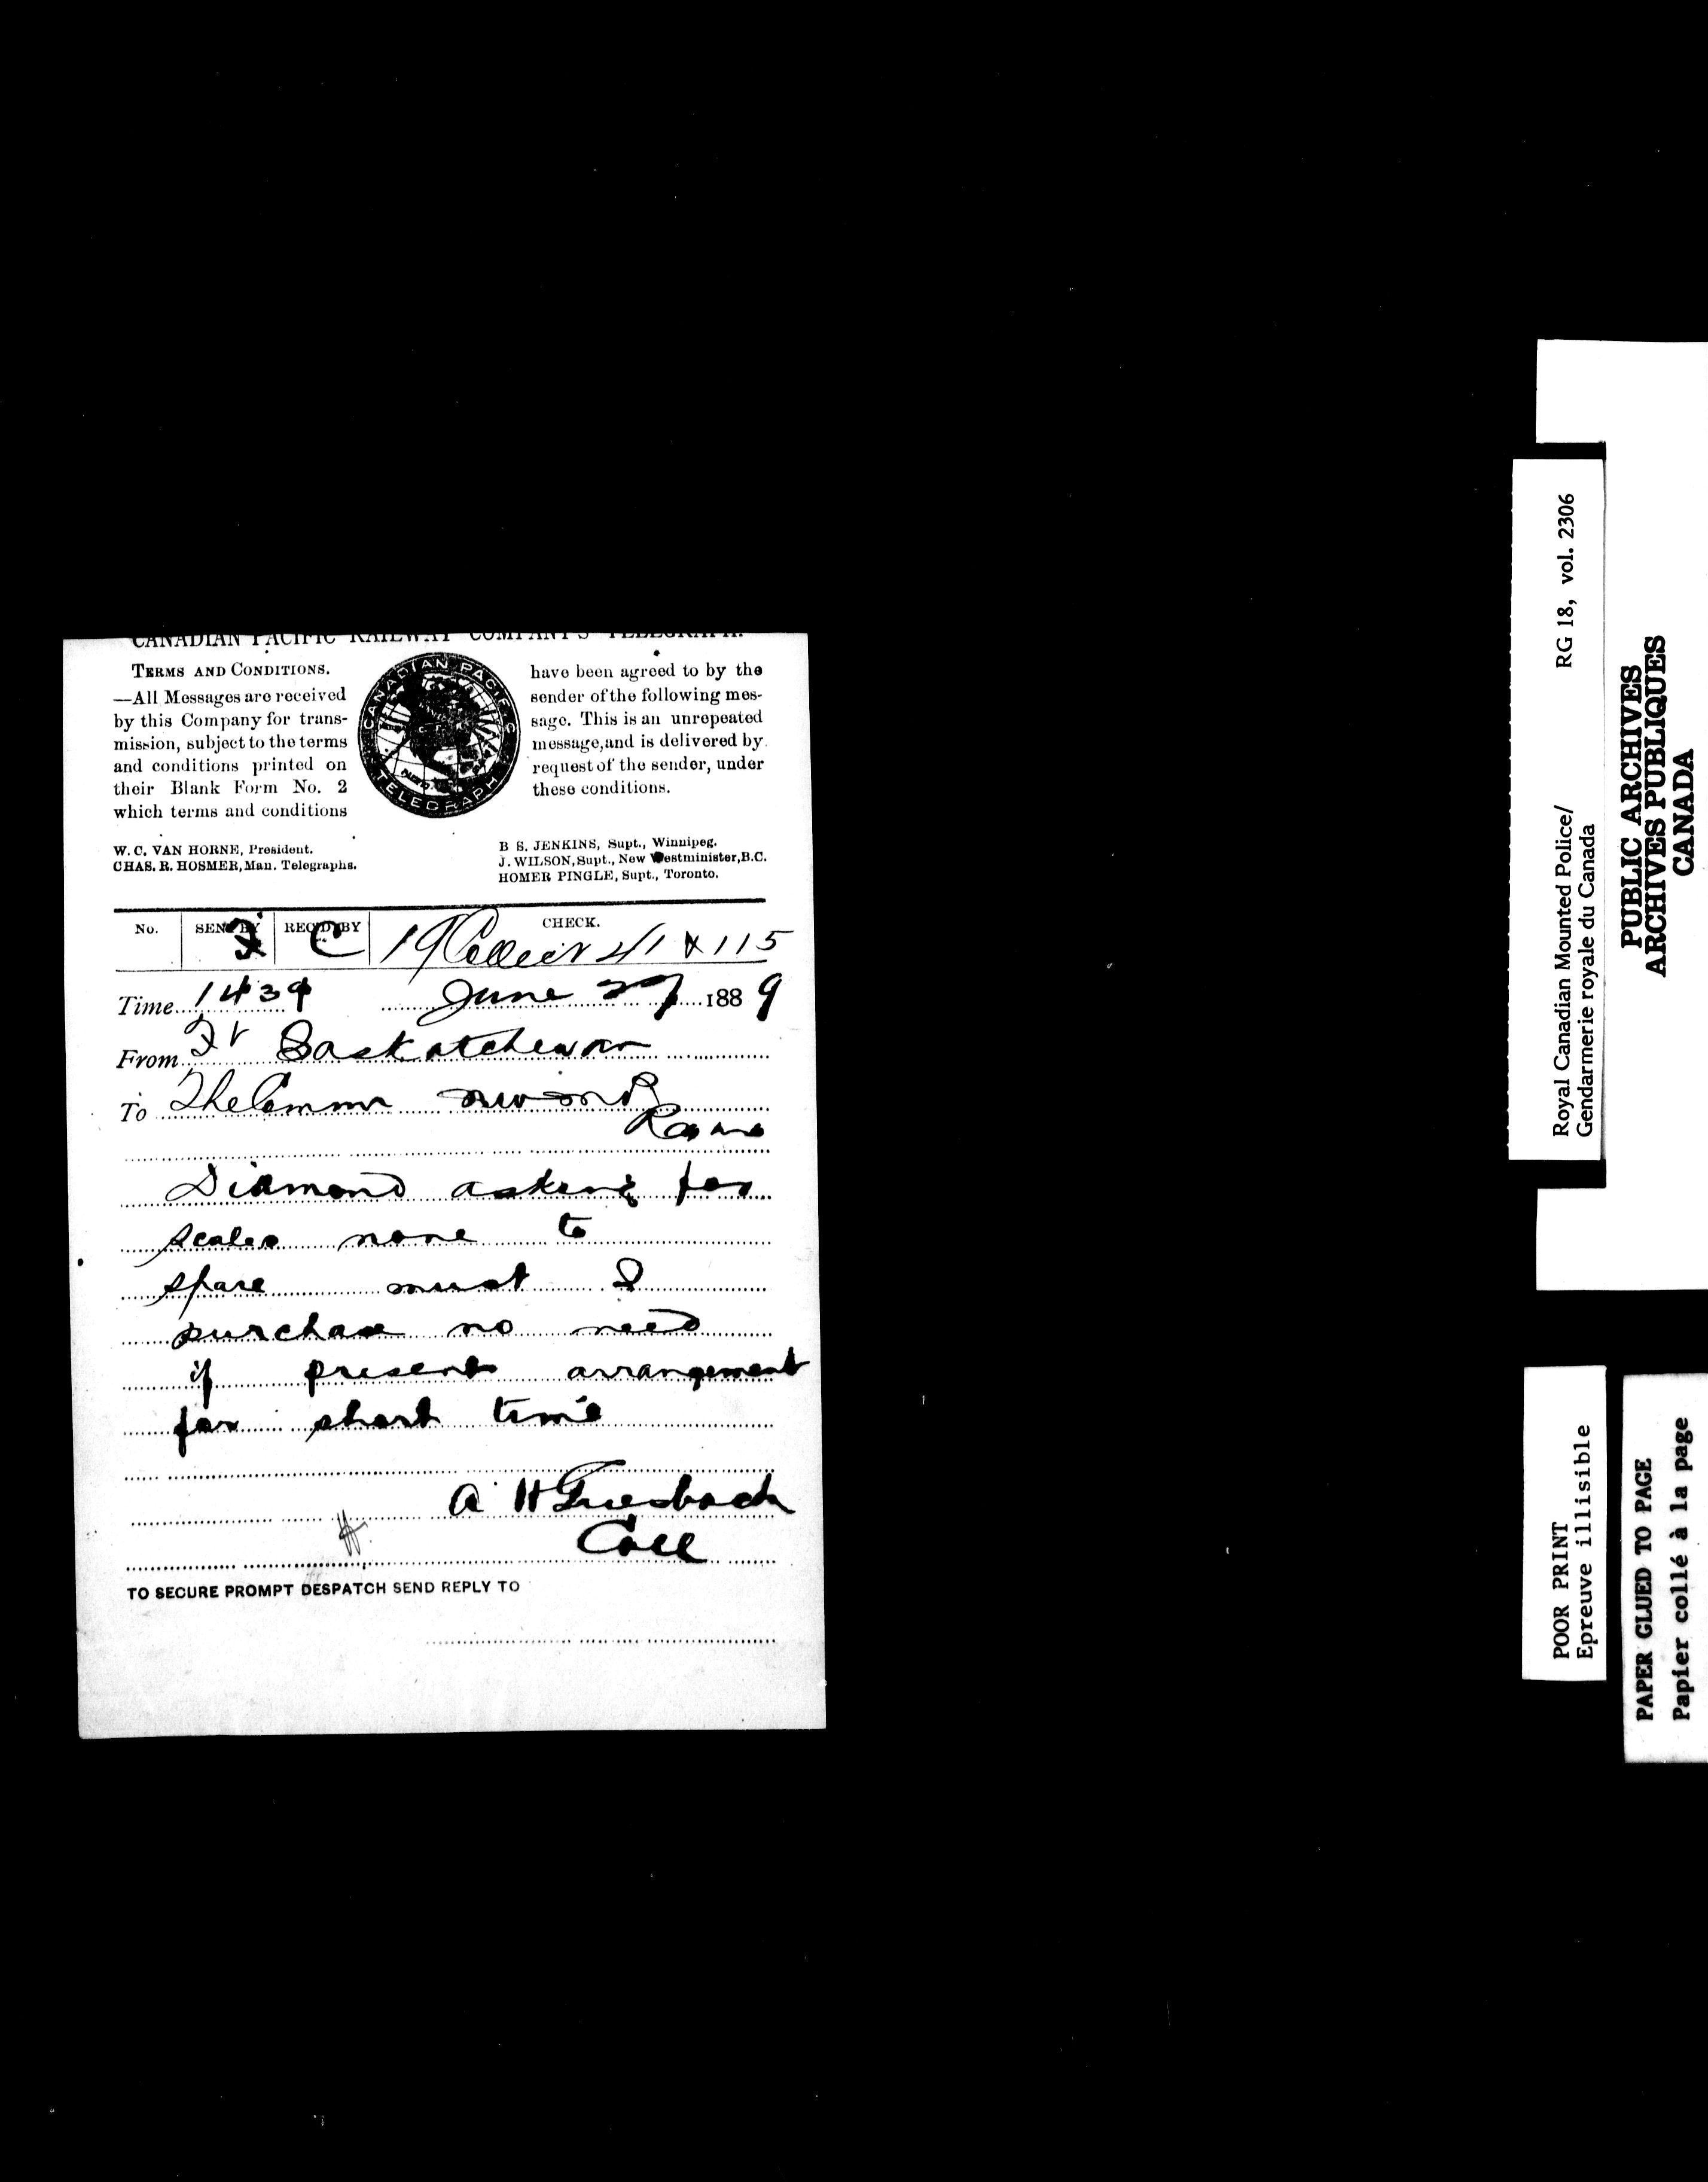 CANADIAN PACIFIC RAILWAY COMPANY'S TELEGRAPH.
TERMS AND CONDITIONS.
—All Messages are received
by this Company for trans-
mission, subject to the terms
and conditions printed on
their Blank Form No. 2
which terms and conditions
CANADIAN PACIFIC
TELEGRAPH
have been agreed to by the
sender of the following mes-
sage. This is an unrepeated
message, and is delivered by
request of the sender, under
these conditions.
W. C. VAN HORNE, President.
CHAS. R. HOSMER, Man. Telegraphs.
B S. JENKINS, Supt., Winnipeg.
J. WILSON, Supt., New Westminister, B.C.
HOMER PINGLE, Supt., Toronto.
No. SENT BY REC'D BY CHECK.
C 19 Collect 41 x 115
Time 1439 June 27 1889
From Ft Saskatchewan
To The Commr NWMP
Diamond asking for
scales none to
spare must I
purchase no need
if present arrangement
for short time
A H Griesbach
Coll
TO SECURE PROMPT DESPATCH SEND REPLY TO
Royal Canadian Mounted Police/ RG 18, vol. 2306
Gendarmerie royale du Canada
PUBLIC ARCHIVES
ARCHIVES PUBLIQUES
CANADA
POOR PRINT
Epreuve illisible
PAPER GLUED TO PAGE
Papier collé à la page